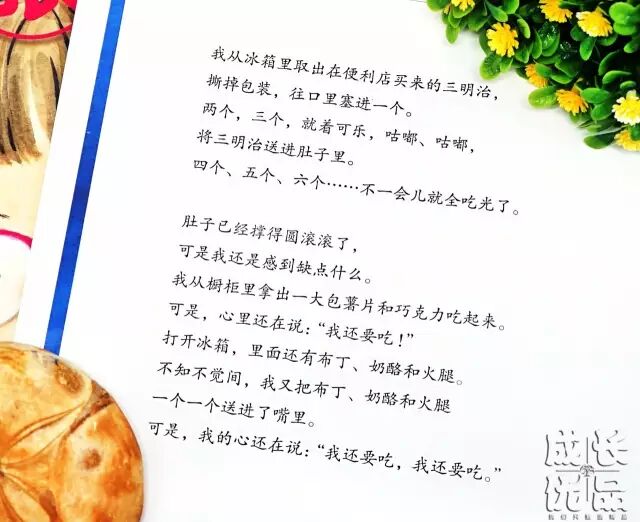 我从冰箱里取出在便利店买来的三明治，
撕掉包装，往口里塞进一个。
两个，三个，就着可乐，咕嘟、咕嘟，
将三明治送进肚子里。
四个、五个、六个……不一会儿就全吃光了。
肚子已经撑得圆滚滚了，
可是我还是感到缺点什么。
我从橱柜里拿出一大包薯片和巧克力吃起来。
可是，心里还在说：“我还要吃！”
打开冰箱，里面还有布丁、奶酪和火腿。
不知不觉间，我又把布丁、奶酪和火腿
一个一个送进了嘴里。
可是，我的心还在说：“我还要吃，我还要吃。”
成长
优品